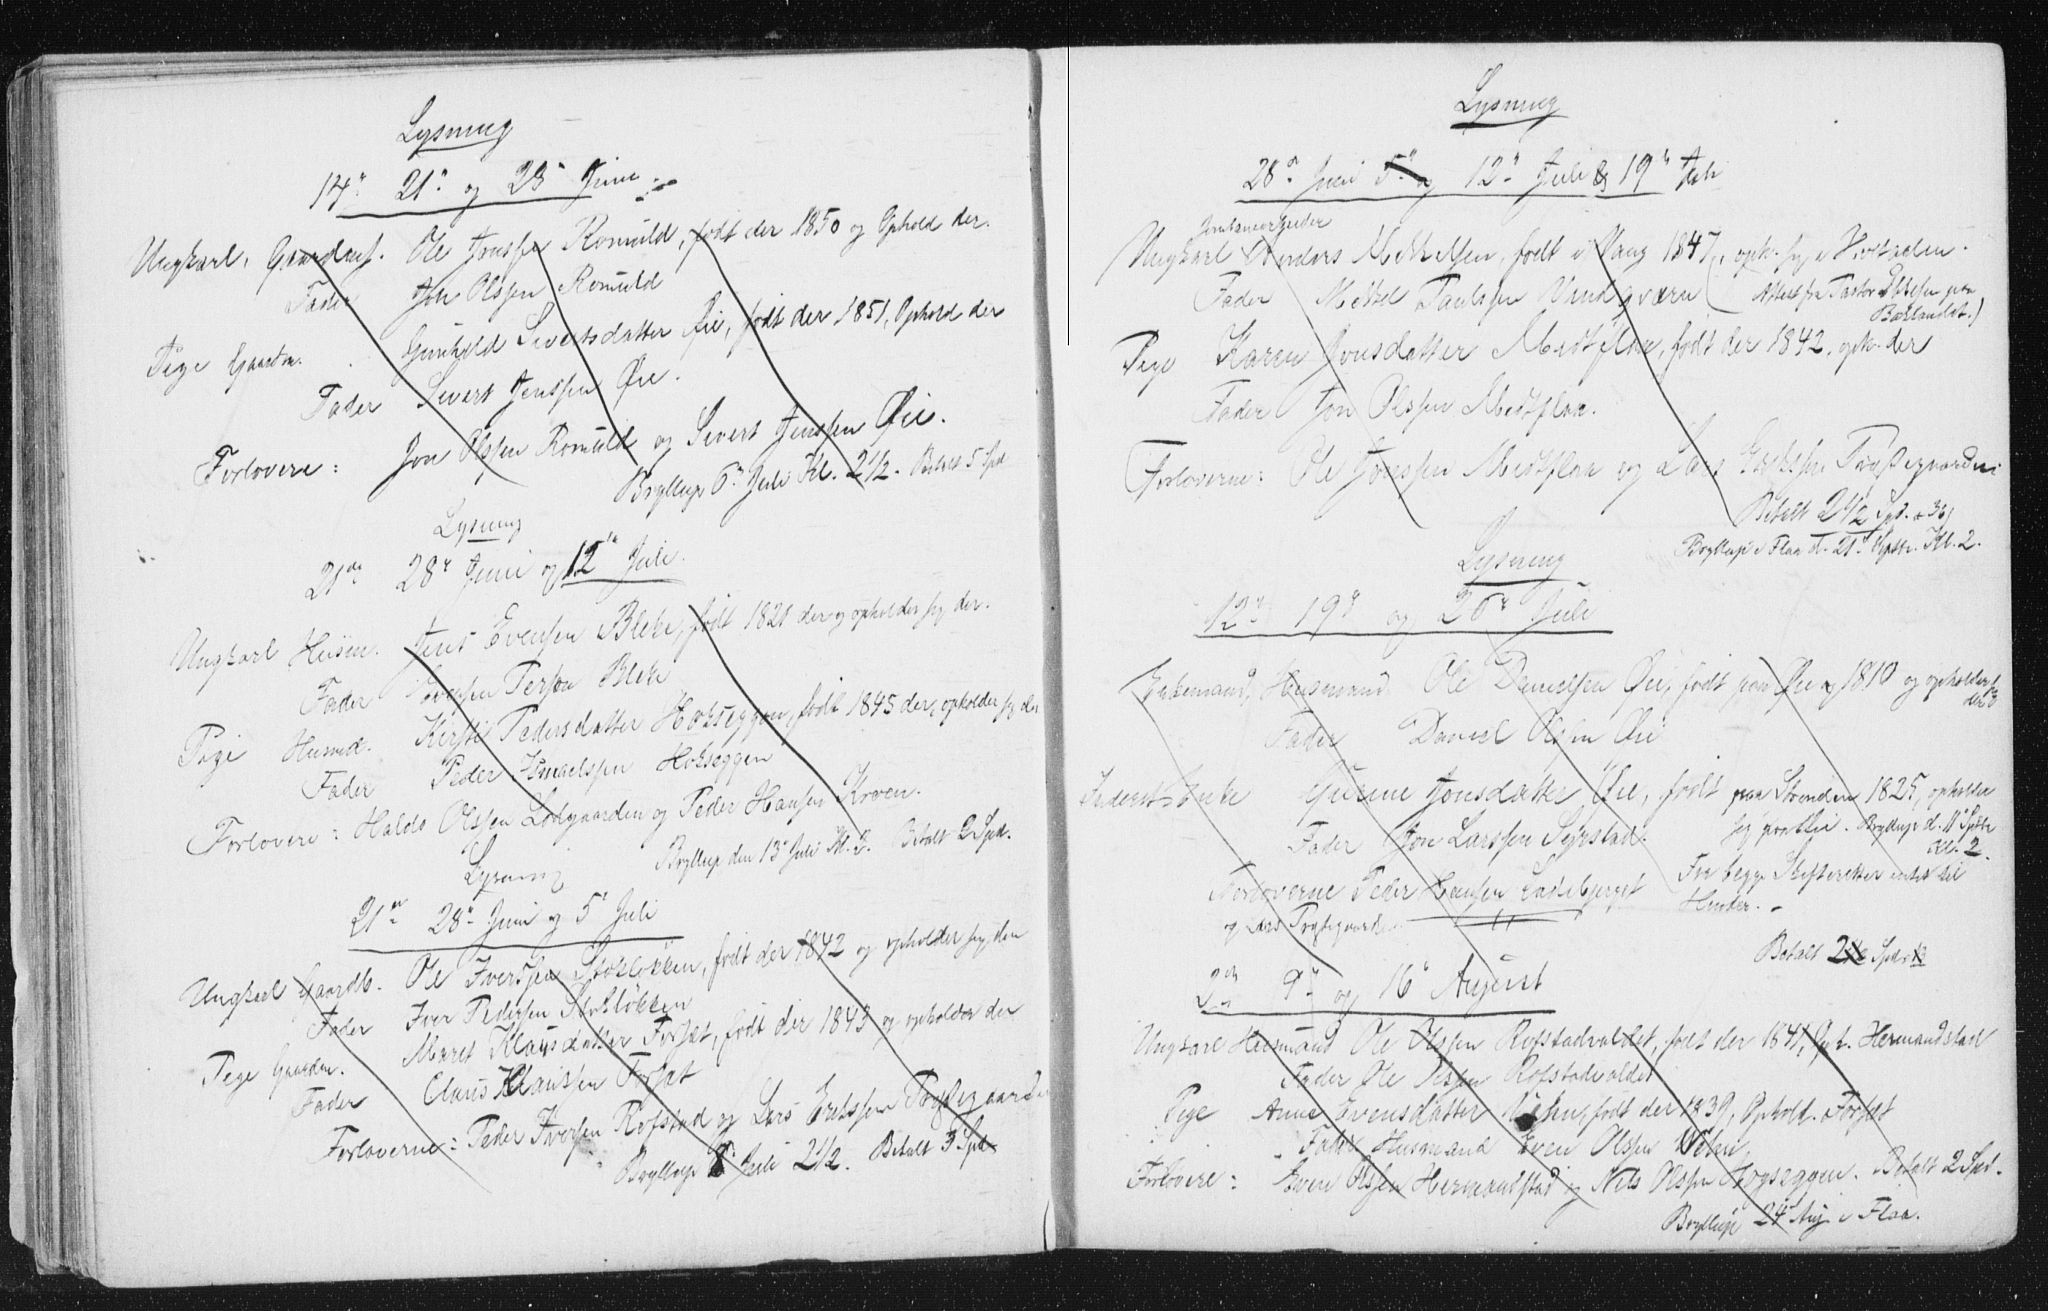 Lysning
14de 21de og 28de Juni
Ungkarl, Gaardmf. Ole Jonssen Romuld, født der 1850 og Ophold der.
Fader Jon Olssen Romuld
Pige Gaardm. Gunhild Sivertsdatter Øie, født der 1851, Ophold der
Fader Sivert Jenssen Øie.
Forlovere: Jon Olssen Romuld og Sivert Jenssen Øie.
Bryllup 6te Juli Kl. 2 1/2. Betalt 5 Spd
Lysning
21de 28de Juni og 12te Juli.
Ungkarl Husm. Jens Evensen Bleke, født 1821 der og opholder sig der.
Fader Evensen Person Bleke
Pige Husmd. Kirsti Pedersdatter Hokseggen, født 1845 der, opholder sig der
Fader Peder Hokseggen
Forlovere: Haldo Olssen Lodgaarden og Peder Hansen Kroen.
Bryllup den 13de Juli Kl. 2. Betalt 2 Spd.
Lysning
21de 28de Juni og 5te Juli
Ungkarl Gaardb. Ole Iverssen Storløkken, født der 1842 og opholder sig der
Fader Iver Pedersen Storløkken
Pige Gaardm. Maret Klausdatter Forsæt, født der 1843 og opholder der
Fader Claus Klaussen Forsæt
Forloverne: Peder Iversen Rofstad og Lars Erikssen Prøstegaarden
Bryllup 8de Juli 2 1/2. Betalt 3 Spd
Lysning
28de Juni 5te og 12te Juli & 19de Juli
Jernbanearbeider
Ungkarl Anders Mekkelsen, født i Vang 1847, oph. sig i Hovstaden.
Fader Mekkel Paulssen Vindqværn (Attest fra Pastor Ebbesen paa
Baklandet.)
Pige Karen Jonsdatter Midtflaa, født der 1842, oph. der
Fader Jon Olssen Midtflaa.
Forloverne: Ole Jonssen Midtflaa og Lars Erikssen Prøstegaarden
Betalt 2 1/2 Spd. + 36
Bryllup i Flaa d. 21de Kl. 2.
Lysning
12te 19de og 26de Juli
Enkemand, Husmand Ole Danielsen Øie, født paa Øie 1810 og opholder sig
der
Fader Daniel Olsen Øie
Inderst Enke Gurine Jonsdatter Øie, født paa Stranden 1825, opholder
sig paa Øie. Bryllup d. 11te Septbr
Kl. 2.
Fader Jon Larssen Syrstad.
Fra begge Skifteretter intet til
Hinder. -
Forloverne Peder Hansen Ladebjerget
og Lars Prøstegaarden
Betalt 2 Spd
2den 9de og 16de August
Ungkarl Husmand Ole Olssen Rofstadvaldet, født der 1841, Oph. Hermandstad
Fader Ole Olssen Rofstadvaldet
Pige Anne Evensdatter født der 1839, Ophold. Forsæt
Fader Husmand Even Olssen
Forlovere: Even Olssen Hermandstad og Nils Olssen Hogseggen. Betalt 2 Spd.
Bryllup 24de Aug i Flaa.